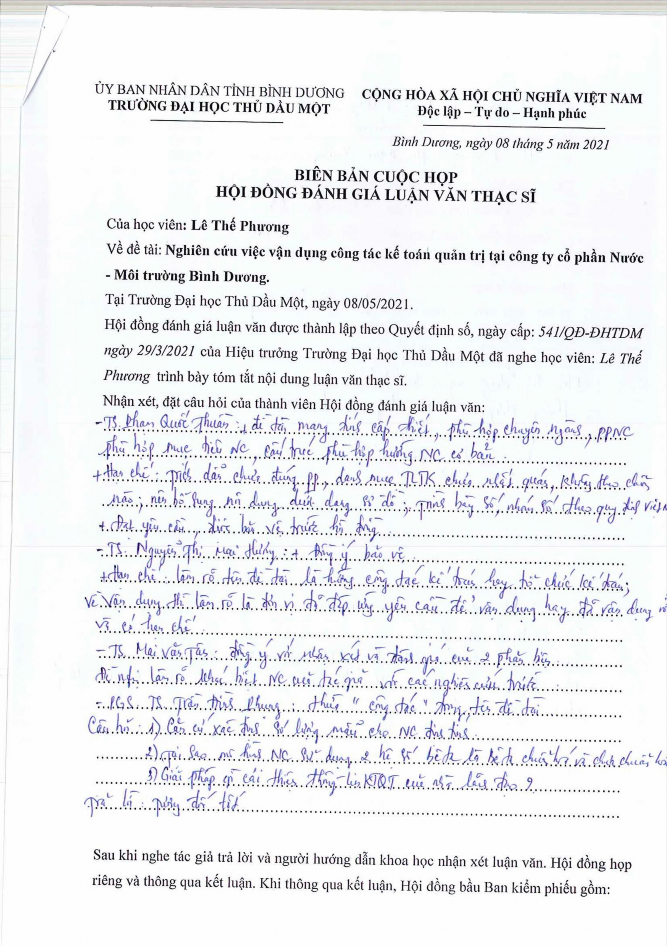 ỦY BAN NHÂN DÂN TỈNH BÌNH DƯƠNG
TRƯỜNG ĐẠI HỌC THỦ DẦU MỘT
CỘNG HÒA XÃ HỘI CHỦ NGHĨA VIỆT NAM
Độc lập – Tự do – Hạnh phúc
Bình Dương, ngày 08 tháng 5 năm 2021
BIÊN BẢN CUỘC HỌP
HỘI ĐỒNG ĐÁNH GIÁ LUẬN VĂN THẠC SĨ
Của học viên: Lê Thế Phương
Về đề tài: Nghiên cứu việc vận dụng công tác kế toán quản trị tại công ty cổ phần Nước
- Môi trường Bình Dương.
Tại Trường Đại học Thủ Dầu Một, ngày 08/05/2021.
Hội đồng đánh giá luận văn được thành lập theo Quyết định số, ngày cấp: 541/QĐ-ĐHTDM
ngày 29/3/2021 của Hiệu trưởng Trường Đại học Thủ Dầu Một đã nghe học viên: Lê Thế
Phương trình bày tóm tắt nội dung luận văn thạc sĩ.
Nhận xét, đặt câu hỏi của thành viên Hội đồng đánh giá luận văn:
- TS. Phan Quốc Thuần: + đề tài mang tính cấp thiết, phù hợp chuyên ngành, PPNC
phù hợp mục tiêu NC, cấu trúc phù hợp hướng NC cơ bản
+ Hạn chế: trích dẫn chưa đúng pp, danh mục TLTK chưa nhất quán, không theo chuẩn
nào, nên bổ sung nội dung dưới dạng sơ đồ, trình bày số, nhóm số theo quy định
+ Đạt yêu cầu, được bảo vệ trước hội đồng
- TS. Nguyễn Thị Mai Hương: + Đồng ý bảo vệ
+ Hạn chế: làm rõ tên đề tài là hướng công tác kế toán hay tổ chức kế toán;
về vận dụng thì làm rõ là đơn vị đã đáp ứng yêu cầu để vận dụng hay đã vận dụng
và có hạn chế
- TS. Mai Văn Tân: đồng ý với nhận xét và đánh giá của 2 phản biện
Đề nghị làm rõ khác biệt NC của tác giả với các nghiên cứu trước
- PGS. TS Trần Đình Phụng: thừa "công tác" trong tên đề tài
Câu hỏi: 1) Căn cứ xác định số lượng mẫu cho NC định tính
2) Tại sao mô hình NC sử dụng 2 hệ số bêta là bêta chuẩn hoá và chưa chuẩn hoá
3) Giải pháp gì cải thiện thông tin KTQT của nhà lãnh đạo ?
trả lời: tương đối tốt
Sau khi nghe tác giả trả lời và người hướng dẫn khoa học nhận xét luận văn. Hội đồng họp
riêng và thông qua kết luận. Khi thông qua kết luận, Hội đồng bầu Ban kiểm phiếu gồm: